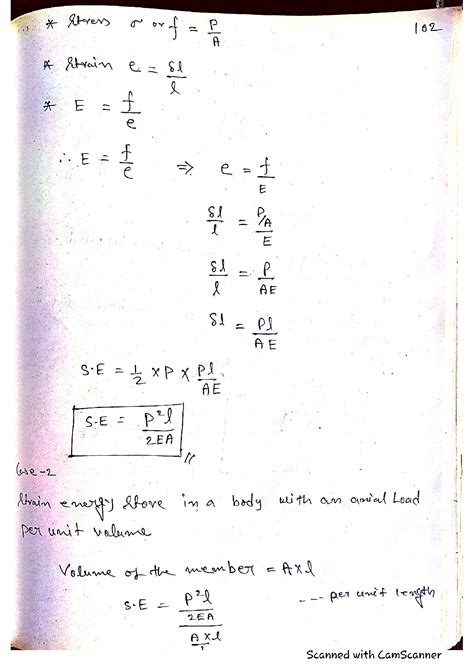 102
* Stress σ or f = P/A
* Strain e = δl/l
* E = f/e
∴ E = f/e ⇒ e = f/E
δl/l = (P/A)/E
δl/l = P/AE
δl = Pl/AE
S.E = 1/2 × P × Pl/AE
S.E = P²l/2EA
Case-2
Strain energy Store in a body with an axial Load
per unit volume
Volume of the member = A×l
S.E = (P²l/2EA)/(A×l/1) --- per unit length
Scanned with CamScanner